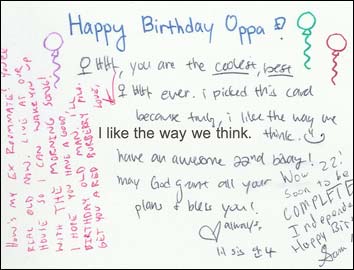 Happy Birthday Oppa!
you are the coolest, best
ever. i picked this card
because truly, i like the way we
think.
I like the way we think.
have an awesome 22nd bday!
may God grant all your
plans & bless you!
always,
HOW'S MY EX ROOMMATE? YOU'RE
REAL OLD MAN. LIVE AT OUR
HOUSE SO I CAN WAKE YOU UP
WITH THE MORNING SONG!
I HOPE YOU HAVE A GOOD
BIRTHDAY OLD MAN. I'LL
GET YOU A RED BURBERRY
LOVE,
Wow 22!
Soon to be
COMPLETE
Independen
Happy Bir
Sam